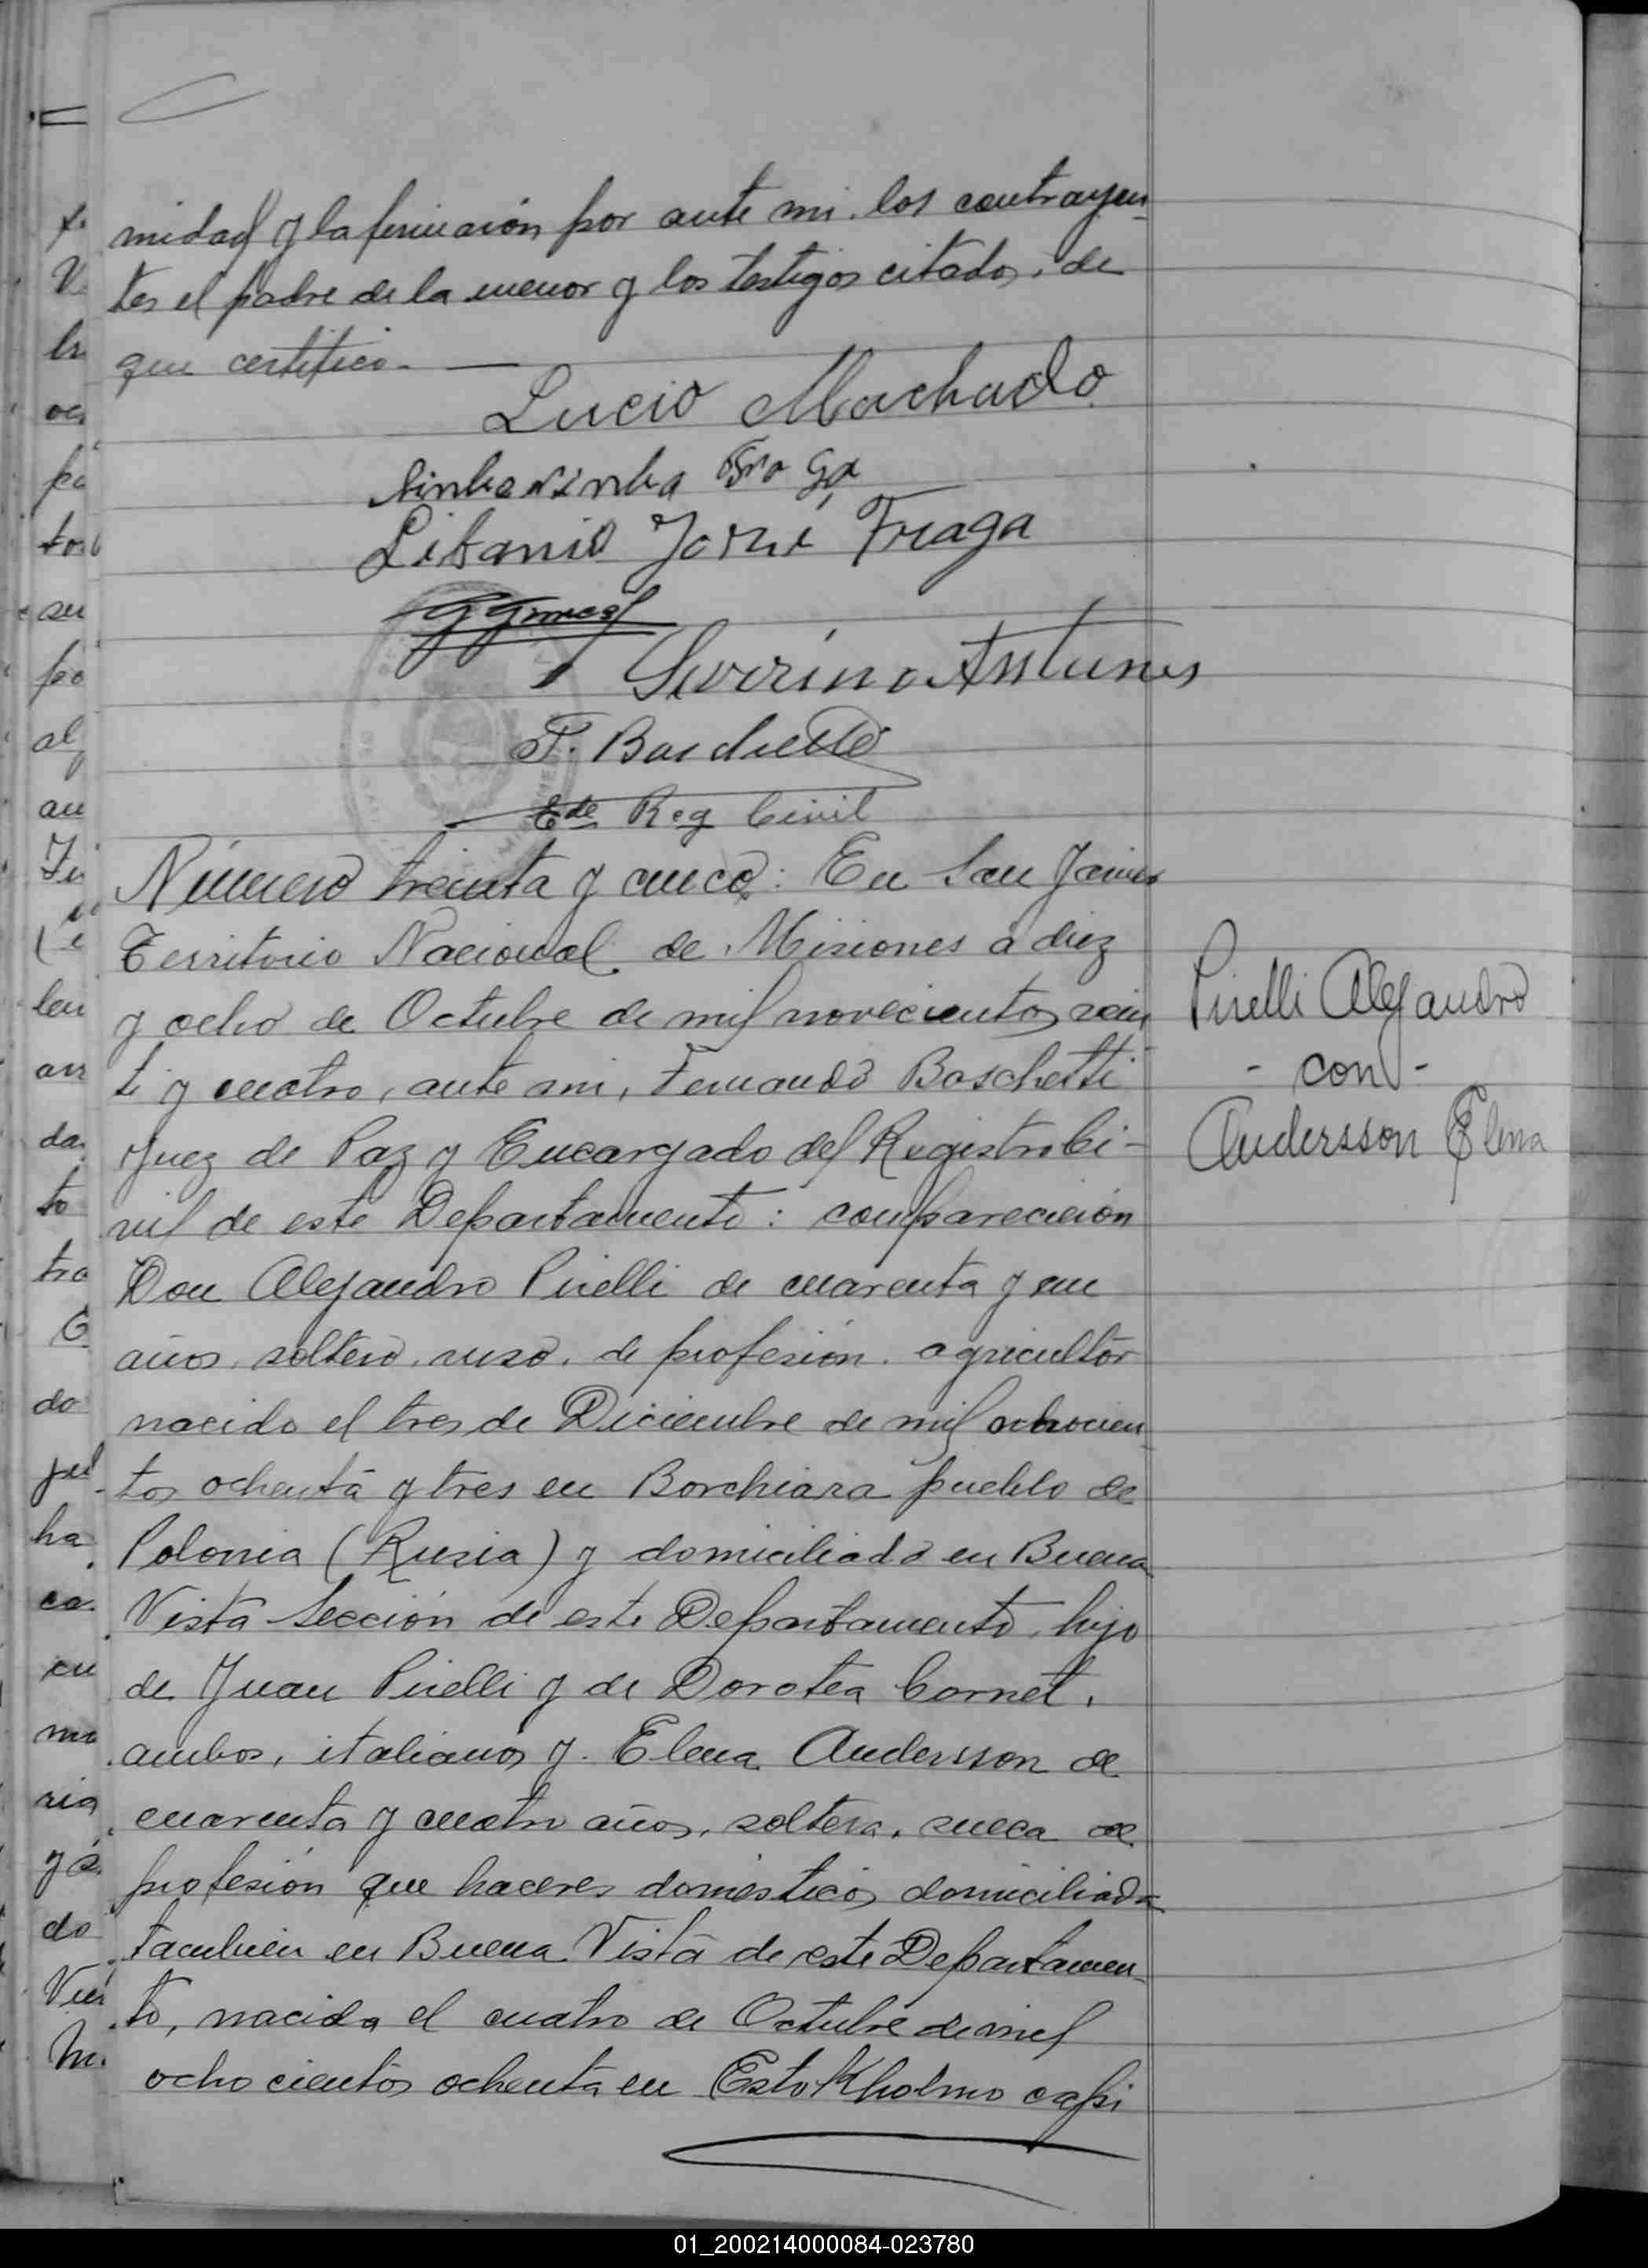 midad y la firmaron por ante mi los contrayen-
tes el padre de la menor y los testigos citados; de
que certifico.
Lucio Machado
Fraga
Libanio José Fraga
Antunes
F. Boschetti
Edo Reg Civil
Número treinta y cinco: En San Javier
Territorio Nacional de Misiones a diez
y ocho de Octubre de mil novecientos vein
ti y cuatro, ante mi, Fernando Boschetti
Juez de Paz y Encargado del Registro Ci-
vil de este Departamento: comparecieron
Don Alejandro Pirelli de cuarenta y un
años, soltero, ruso, de profesión agricultor
nacido el tres de Diciembre de mil ochocien
tos ochenta y tres en Borchiara pueblo de
Polonia (Rusia) y domiciliado en Buena
Vista Sección de este Departamento, hijo
de Juan Pirelli y de Dorotea Cornet,
ambos, italianos y Elena Andersson de
cuarenta y cuatro años, soltera, sueca de
profesión que haceres domésticos domiciliada
tambien en Buena Vista de este Departamen-
to, nacida el cuatro de Octubre de mil
ocho cientos ochenta en EstoKholmo capi
Pirelli Alejandro
- con -
Andersson Elena
01_200214000084-023780